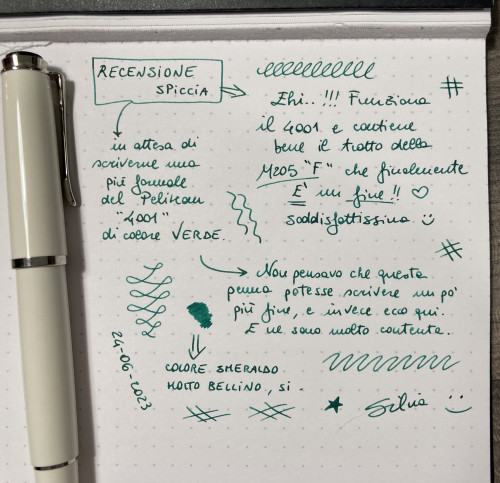 RECENSIONE
SPICCIA
in attesa di
scriverne una
più formale
del Pelikan
"4001"
di colore VERDE.
Ehi.. !!! Funziona
il 4001 e contiene
bene il tratto della
M205 "F" che finalmente
E' un fine!! ♡
soddisfattissima
Non pensavo che questa
penna potesse scrivere un po'
più fine, e invece ecco qui.
E ne sono molto contenta.
COLORE SMERALDO
MOLTO BELLINO, SI.
24-06-2023
Silvia